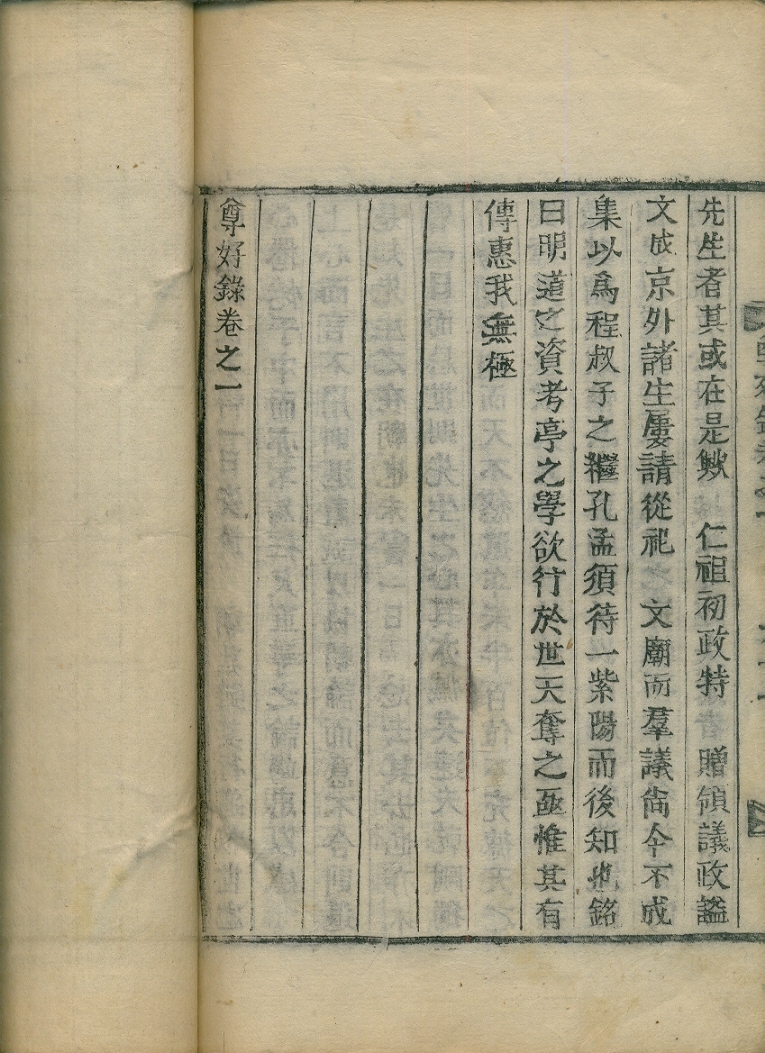 先生者其或在是歟　仁祖初政特　贈領議政謚
文成京外諸生屢請從祀　文廟而羣議尙今不成
集以爲程叔子之繼孔孟須待一紫陽而後知也銘
曰明道之資考亭之學欲行於世天奪之亟惟其有
傳惠我無極
尊好錄卷之一